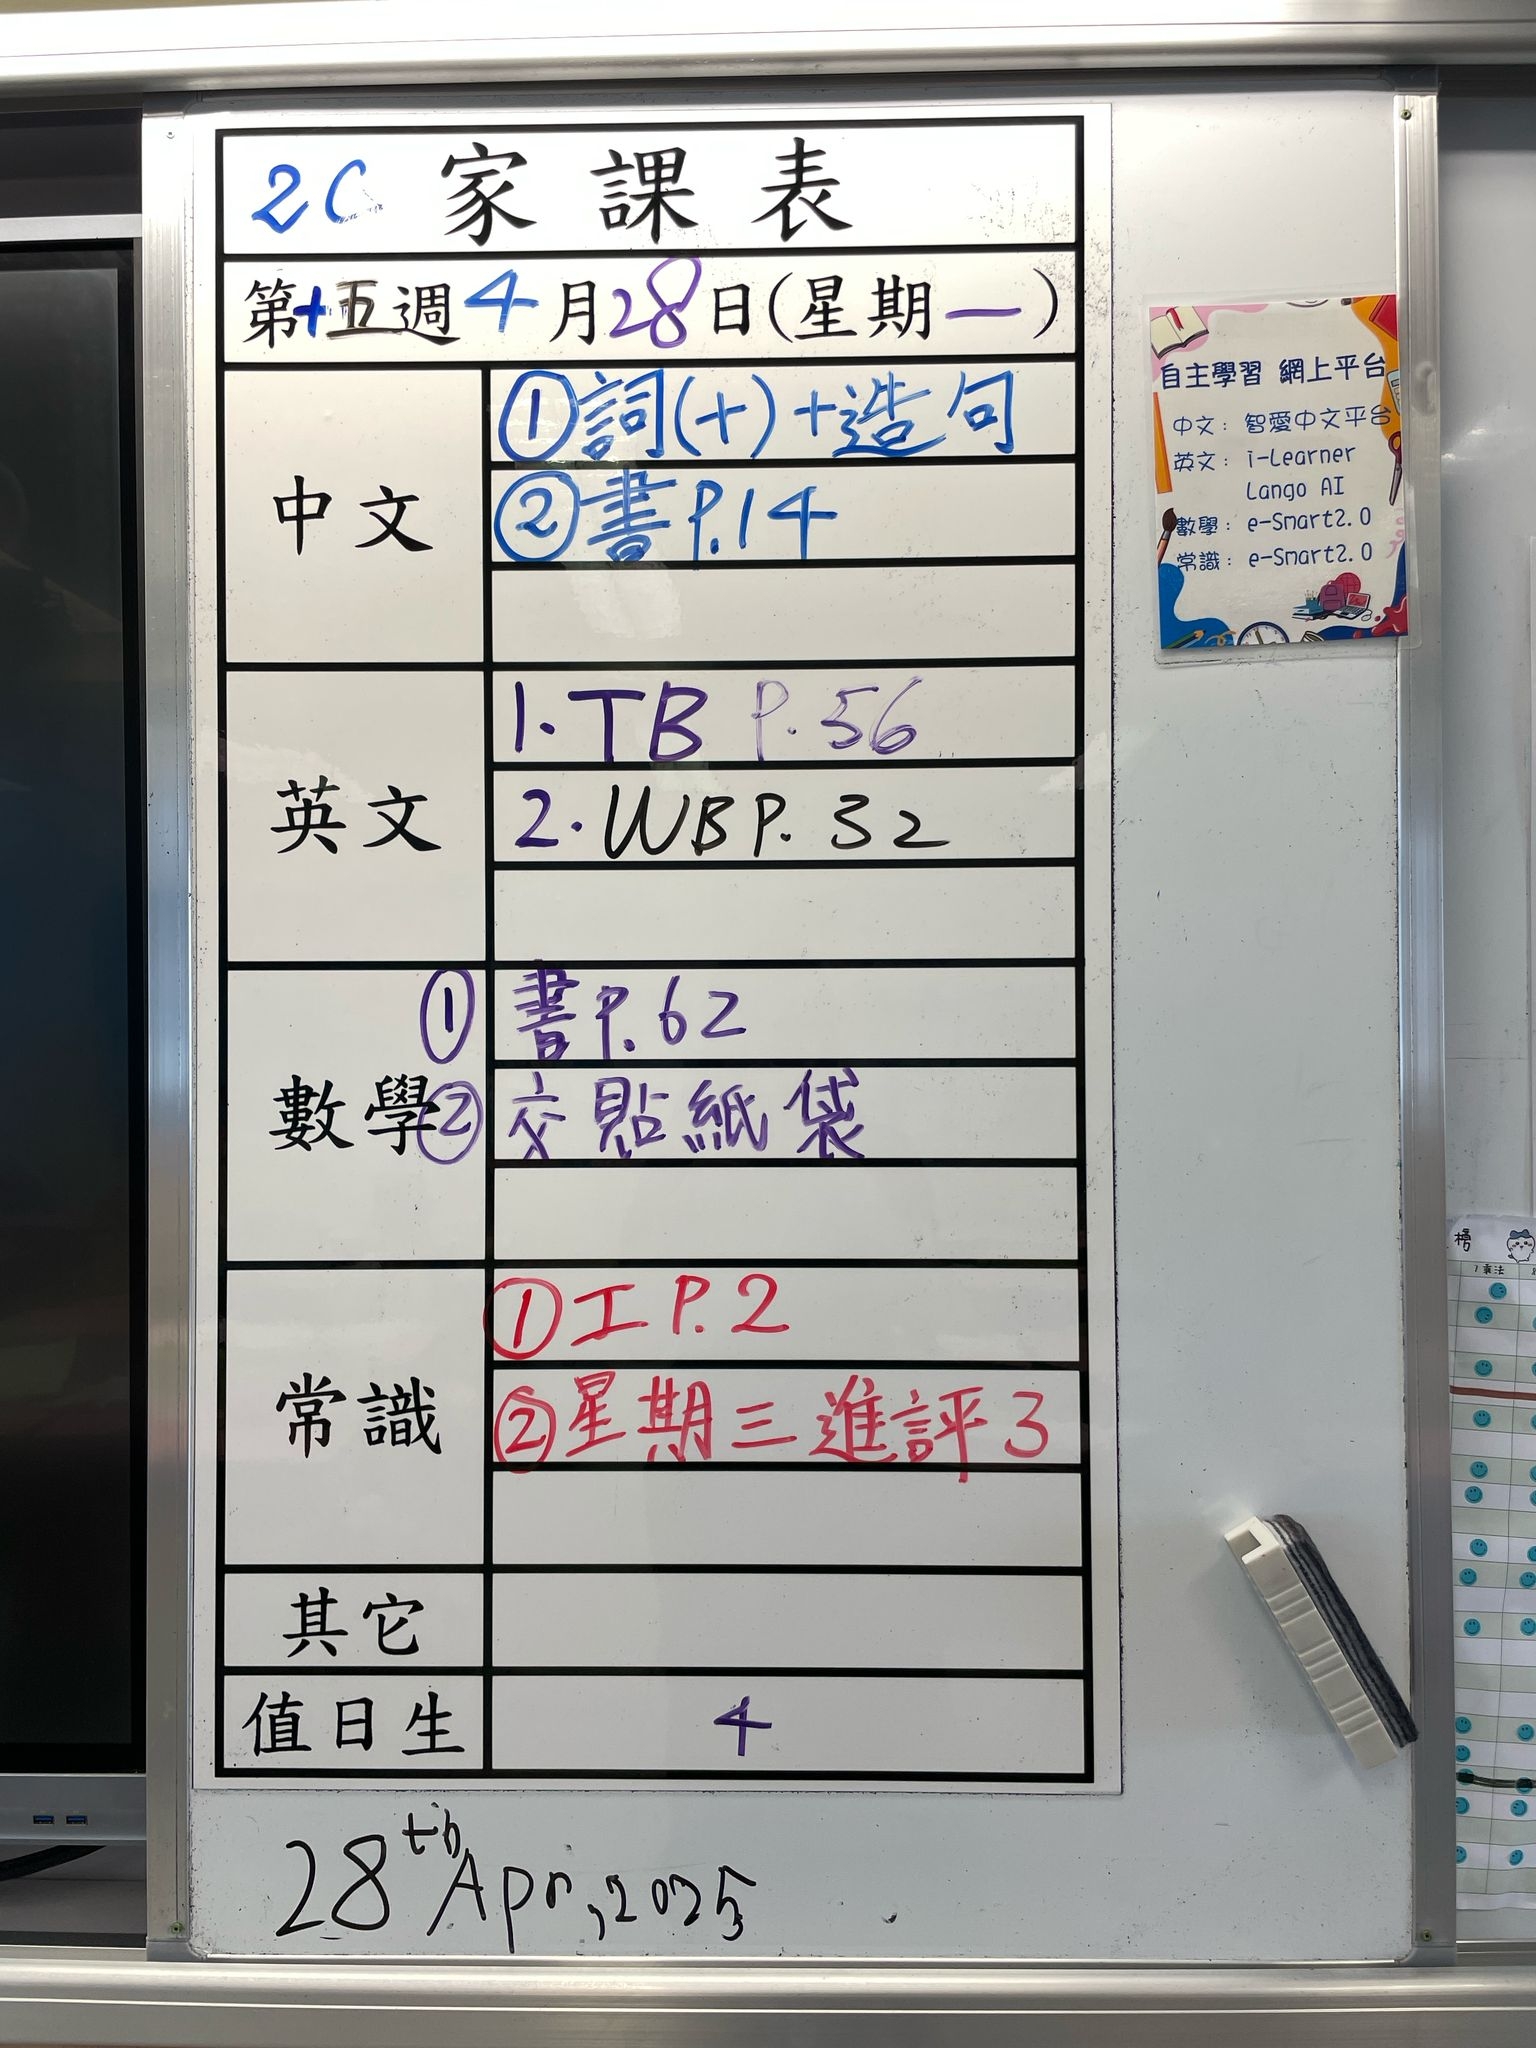 2C 家課表
第十五週 4月28日(星期一)
中文
①詞(十)+造句
②書P.14
英文
1. TB P.56
2. WB P.32
數學
① 書P.62
② 交貼紙袋
常識
①工P.2
②星期三進評3
其它
值日生
4
28th Apr, 2025
自主學習 網上平台
中文：智愛中文平台
英文：i-Learner
Lango AI
數學：e-Smart2.0
常識：e-Smart2.0